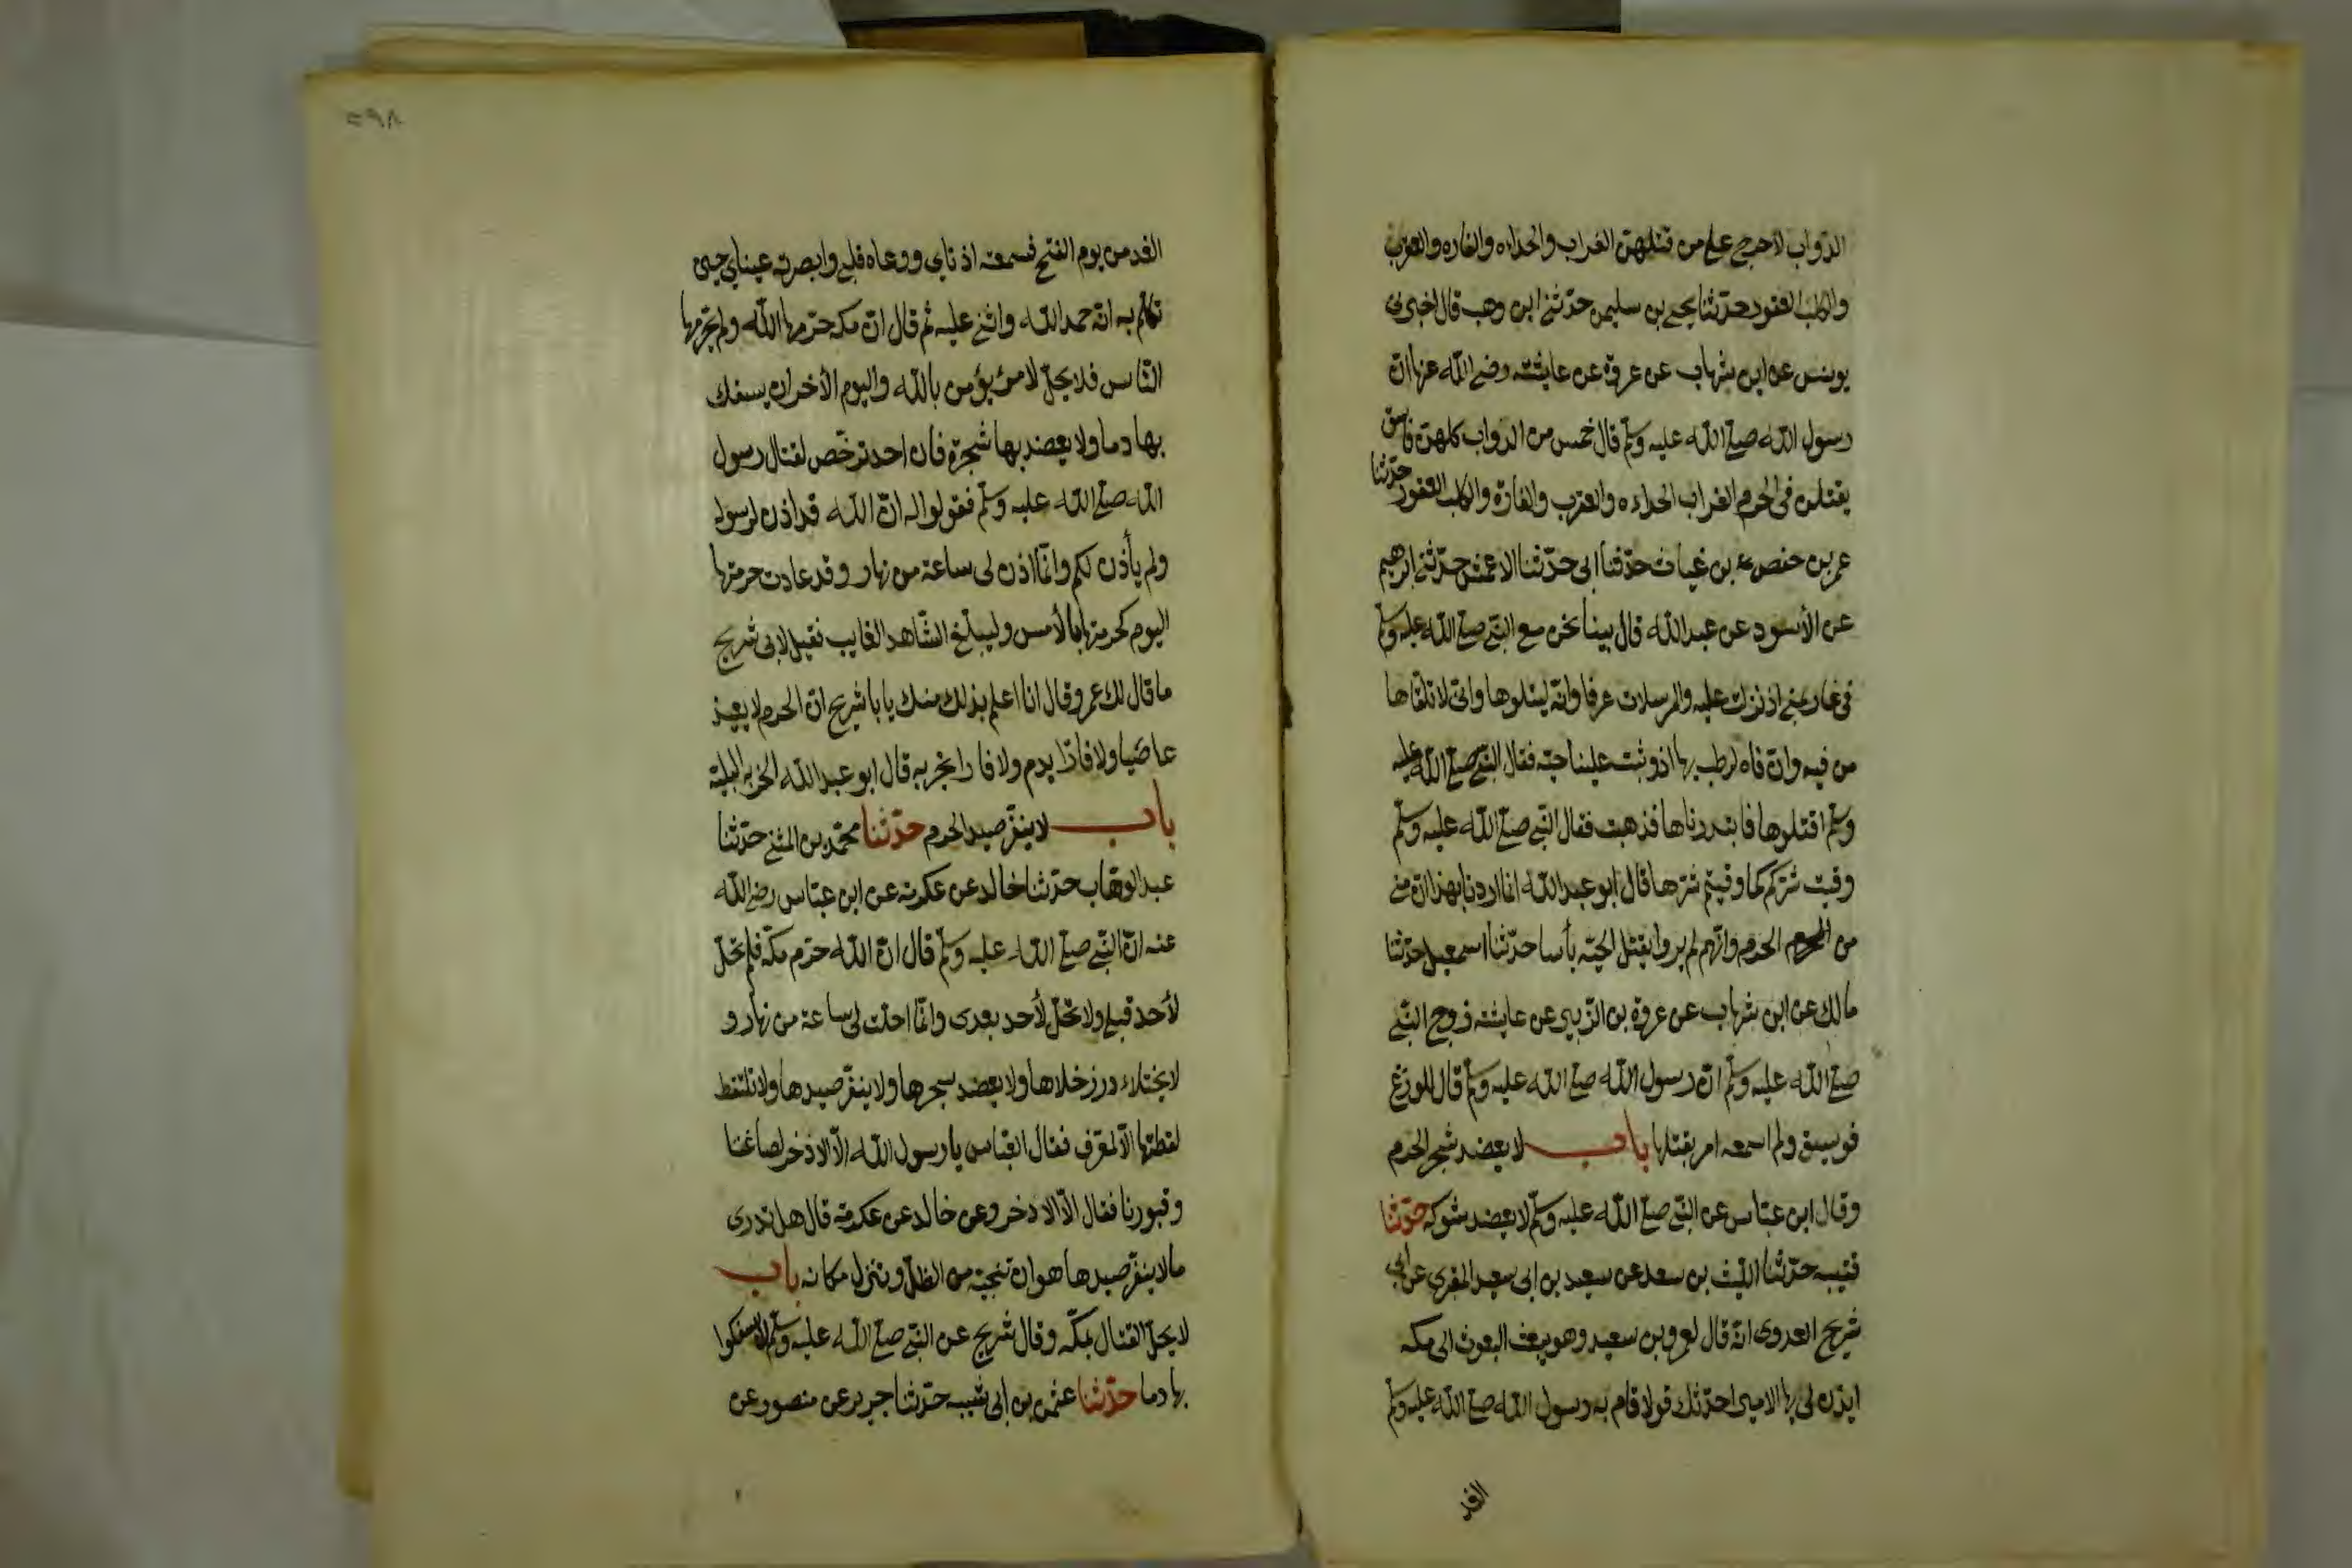 الدواب لا حرج على من قتلهن الغراب والحداءه والفاره والعقرب
والكلب العقور حدّثنا يحيى بن سليمن حدّثنى ابن وهب قال اخبرنى
يونس عن ابن شهاب عن عروة عن عايشة رضى الله عنها انّ
رسول الله صلى الله عليه وسلّم قال خمس من الدواب كلهن فاسق
يقتلن فى الحرم الغراب الحداءه والعقرب والفارة والكلب العقور حدّثنا
عمر بن حفص بن غياث حدّثنا ابى حدّثنا الاعمش حدّثنى ابرهيم
عن الأسود عن عبد الله قال بينا نحن مع النبّى صلى الله عليه وسلّم
فى غار بمنى اذ نزلت عليه والمرسلات عرفا وانّه ليتلوها وانّى لا تلقاها
من فيه وانّ فاه لرطب بها اذ وثبت علينا حيّه فقال النبّى صلى الله عليه
وسلّم اقتلوها فابتدرناها فذهبت فقال النبّى صلى الله عليه وسلّم
وقيت شرّكم كما وقيتم شرّها قال ابو عبد الله انما اردنا بهذا انّ منى
من الحرم وانّهم لم يروا بقتل الحيّه بأسا حدّثنا اسمعيل حدّثنا
مالك عن ابن شهاب عن عروة بن الزبير عن عايشة زوج النبّى
صلى الله عليه وسلّم ان رسول الله صلى الله عليه وسلّم قال للوزغ
فويسق ولم اسمعه امر بقتلها باب لا يعضد شجر الحرم
وقال ابن عبّاس عن النبّى صلى الله عليه وسلّم لا يعضد شوكه حدّثنا
قتيبه حدّثنا الليث بن سعد عن سعيد بن ابى سعيد المقبرى عن ابى
شريح العدوى انّه قال لعمرو بن سعيد وهو يبعث البعوث الى مكه
ايذن لى ايها الامير احدّثك قولا قام به رسول الله صلى الله عليه وسلّم
الغد
٥٩٨
الغد من يوم الفتح فسمعته اذناى ووعاه قلبى وابصرته عيناى حين
تكلّم به انّه حمد الله واثنى عليه ثم قال انّ مكه حرّمها الله ولم يحرّمها
النّاس فلا يحلّ لامرئ يؤمن بالله واليوم الأخر ان يسفك
بها دما ولا يعضد بها شجرة فان احد ترخّص لقتال رسول
الله صلى الله عليه وسلّم فقولوا له انّ الله قد اذن لرسوله
ولم يأذن لكم وانّما اذن لى ساعة من نهار وقد عادت حرمتها
اليوم كحرمتها بالأمس وليبلّغ الشّاهد الغايب فقيل لابى شريح
ما قال لك عمرو قال انا اعلم بذلك منك يا با شريح ان الحرم لا يعيذ
عاصيا ولا فارّا بدم ولا فارا بخربه قال ابو عبد الله الخربه البليّة
باب لا ينفّر صيد الحرم حدّثنا محمّد بن المثنى حدّثنا
عبد الوهّاب حدّثنا خالد عن عكرمة عن ابن عبّاس رضى الله
عنه انّ النبّى صلى الله عليه وسلّم قال انّ الله حرّم مكّة فلم تحلّ
لأحد قبلى ولا تحلّ لأحد بعدى وانّما احلّت لى ساعة من نهار و
لا يختلاء خلاها ولا يعضد شجرها ولا ينفّر صيدها ولا تلتقط
لقطتها الّا لمعرّف فقال العبّاس يا رسول الله الّا الاذخر لصاغتنا
وقبورنا فقال الّا الاذخر وعن خالد عن عكرمة قال هل تدرى
ما لا ينفّر صيدها هو ان تنحّيه من الظلّ وتنزل مكانه باب
لا يحلّ القتال بمكّه وقال شريح عن النبّى صلى الله عليه وسلّم لا يسفكوا
بها دما حدّثنا عثمن بن ابى شيبه حدّثنا جرير عن منصور عن